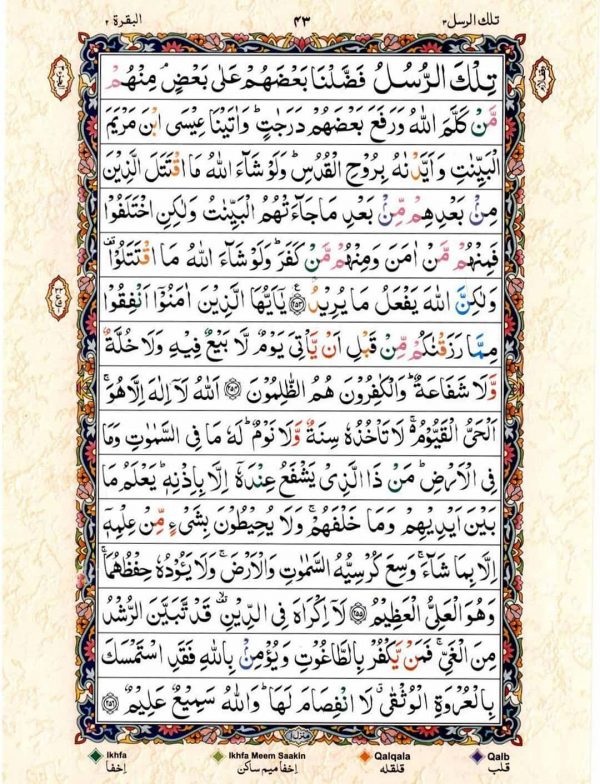 تلك الرسل ٣ ٤٣ البقرة ٢
تِلْكَ الرُّسُلُ فَضَّلْنَا بَعْضَهُمْ عَلٰى بَعْضٍ ۘ مِنْهُمْ
مَّنْ كَلَّمَ اللّٰهُ وَرَفَعَ بَعْضَهُمْ دَرَجٰتٍ ؕ وَاٰتَيْنَا عِيْسَى ابْنَ مَرْيَمَ
الْبَيِّنٰتِ وَاَيَّدْنٰهُ بِرُوْحِ الْقُدُسِ ؕ وَلَوْ شَآءَ اللّٰهُ مَا اقْتَتَلَ الَّذِيْنَ
مِنْۢ بَعْدِهِمْ مِّنْۢ بَعْدِ مَا جَآءَتْهُمُ الْبَيِّنٰتُ وَلٰكِنِ اخْتَلَفُوْا
فَمِنْهُمْ مَّنْ اٰمَنَ وَمِنْهُمْ مَّنْ كَفَرَ ؕ وَلَوْ شَآءَ اللّٰهُ مَا اقْتَتَلُوْا ۟
وَلٰكِنَّ اللّٰهَ يَفْعَلُ مَا يُرِيْدُ ۧ ﴿۲۵۳﴾ يٰۤاَيُّهَا الَّذِيْنَ اٰمَنُوْۤا اَنْفِقُوْا
مِمَّا رَزَقْنٰكُمْ مِّنْ قَبْلِ اَنْ يَّاْتِيَ يَوْمٌ لَّا بَيْعٌ فِيْهِ وَلَا خُلَّةٌ
وَّلَا شَفَاعَةٌ ؕ وَالْكٰفِرُوْنَ هُمُ الظّٰلِمُوْنَ ﴿۲۵۴﴾ اَللّٰهُ لَاۤ اِلٰهَ اِلَّا هُوَ ۚ
اَلْحَيُّ الْقَيُّوْمُ ۚ لَا تَاْخُذُهٗ سِنَةٌ وَّلَا نَوْمٌ ؕ لَهٗ مَا فِى السَّمٰوٰتِ وَمَا
فِى الْاَرْضِ ؕ مَنْ ذَا الَّذِيْ يَشْفَعُ عِنْدَهٗۤ اِلَّا بِاِذْنِهٖ ؕ يَعْلَمُ مَا
بَيْنَ اَيْدِيْهِمْ وَمَا خَلْفَهُمْ ۚ وَلَا يُحِيْطُوْنَ بِشَيْءٍ مِّنْ عِلْمِهٖۤ
اِلَّا بِمَا شَآءَ ۚ وَسِعَ كُرْسِيُّهُ السَّمٰوٰتِ وَالْاَرْضَ ۚ وَلَا يَـُٔوْدُهٗ حِفْظُهُمَا ۚ
وَهُوَ الْعَلِيُّ الْعَظِيْمُ ﴿۲۵۵﴾ لَاۤ اِكْرَاهَ فِى الدِّيْنِ ۟ قَدْ تَّبَيَّنَ الرُّشْدُ
مِنَ الْغَيِّ ۚ فَمَنْ يَّكْفُرْ بِالطَّاغُوْتِ وَيُؤْمِنْۢ بِاللّٰهِ فَقَدِ اسْتَمْسَكَ
بِالْعُرْوَةِ الْوُثْقٰى ۗ لَا انْفِصَامَ لَهَا ؕ وَاللّٰهُ سَمِيْعٌ عَلِيْمٌ ﴿۲۵۶﴾
Ikhfa Ikhfa Meem Saakin Qalqala Qalb
إخفا إخفا میم ساکن قلقله قلب